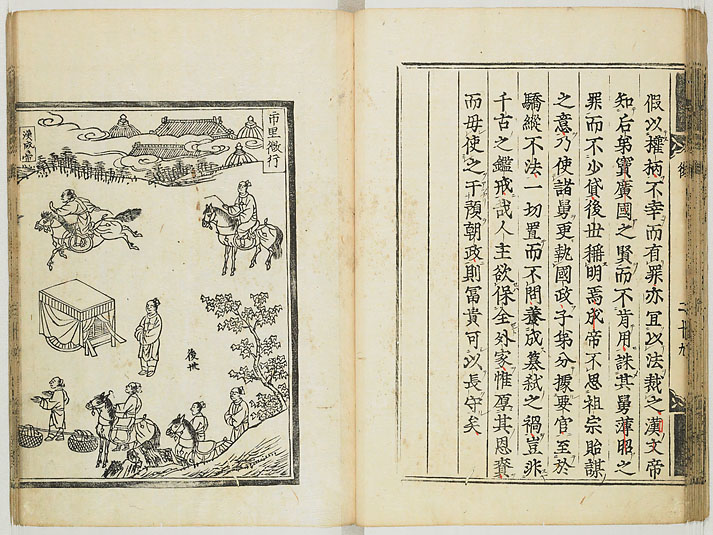 假以權柄不幸而有罪亦冝以法裁之漢文帝
知后弟竇廣國之賢而不肯用誅其舅薄昭之
罪而不少貸後世稱明焉成帝不思祖宗貽謀
之意乃使諸舅更執國政子弟分據要官至於
驕縱不法一切置而不問養成簒弑之禍豈非
千古之鑑戒哉人主欲保全外家惟厚其恩賚
而毋使之干預朝政則冨貴可以長守矣
市里微行
漢成帝